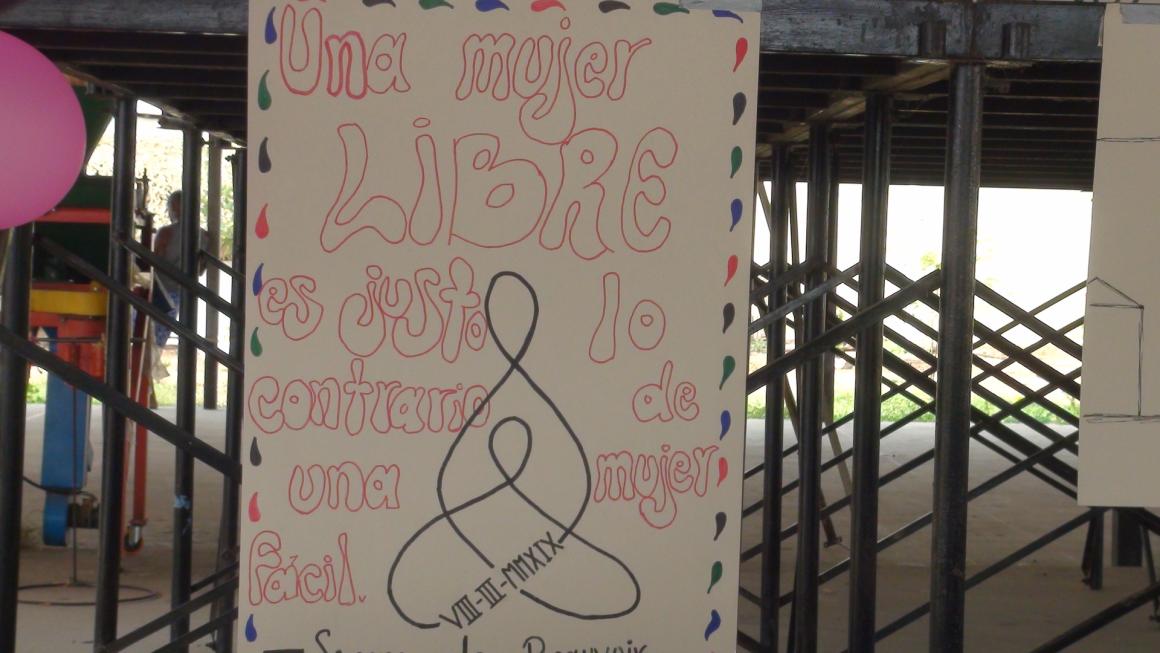 Una mujer
LiBRE
es justo lo
contrario de
una mujer
fácil.
VIII-III-MMXIX